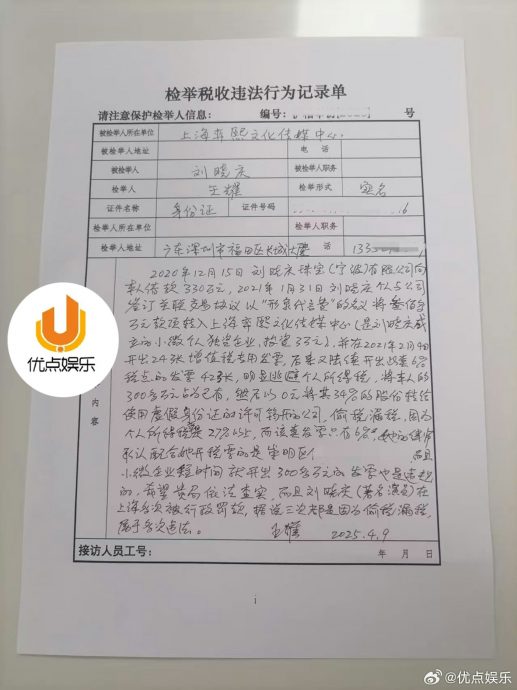 检举税收违法行为记录单
请注意保护检举人信息: 编号: 号
被检举人所在单位 上海弈熙文化传媒中心
被检举人地址 电 话
被检举人 刘晓庆 被检举人职务
检举人 王耀 检举形式 实名
证件名称 身份证 证件号码 6
检举人所在单位 检举人职务
检举人地址 广东深圳市福田区长城大厦 电 话 133
2020年12月15日刘晓庆珠宝(宁波)有限公司向
借款330万元,2021年1月31日刘晓庆个人与公司
签订关联交易协议以"形象代言费"的名义将叁佰多
万元款项转入上海弈熙文化传媒中心(是刘晓庆成
立的小微个人独资企业,投资3万元),并在2021年2月4日
开出24张增值税专用发票,后来又陆续开出
税点的发票42张,明显逃避个人所得税,将本人的
300多万元占为己有,然后以0元将其34%的股份转给
使用虚假身份证的许可转开的公司,偷税漏税,因为
个人所得税是27%以上,而该类发票只有6%,她的律师
承认配合她开税票的是崇明区
而且
小微企业短时间就开出300多万元的发票也是违规
的,希望贵局依法查实,而且刘晓庆(著名演员)在
上海多次被行政罚款,据说三次都是因为偷税漏税,
属于多次违法。 王耀 2025.4.9
内容
接访人员工号: 年 月 日
i
优点娱乐
@优点娱乐